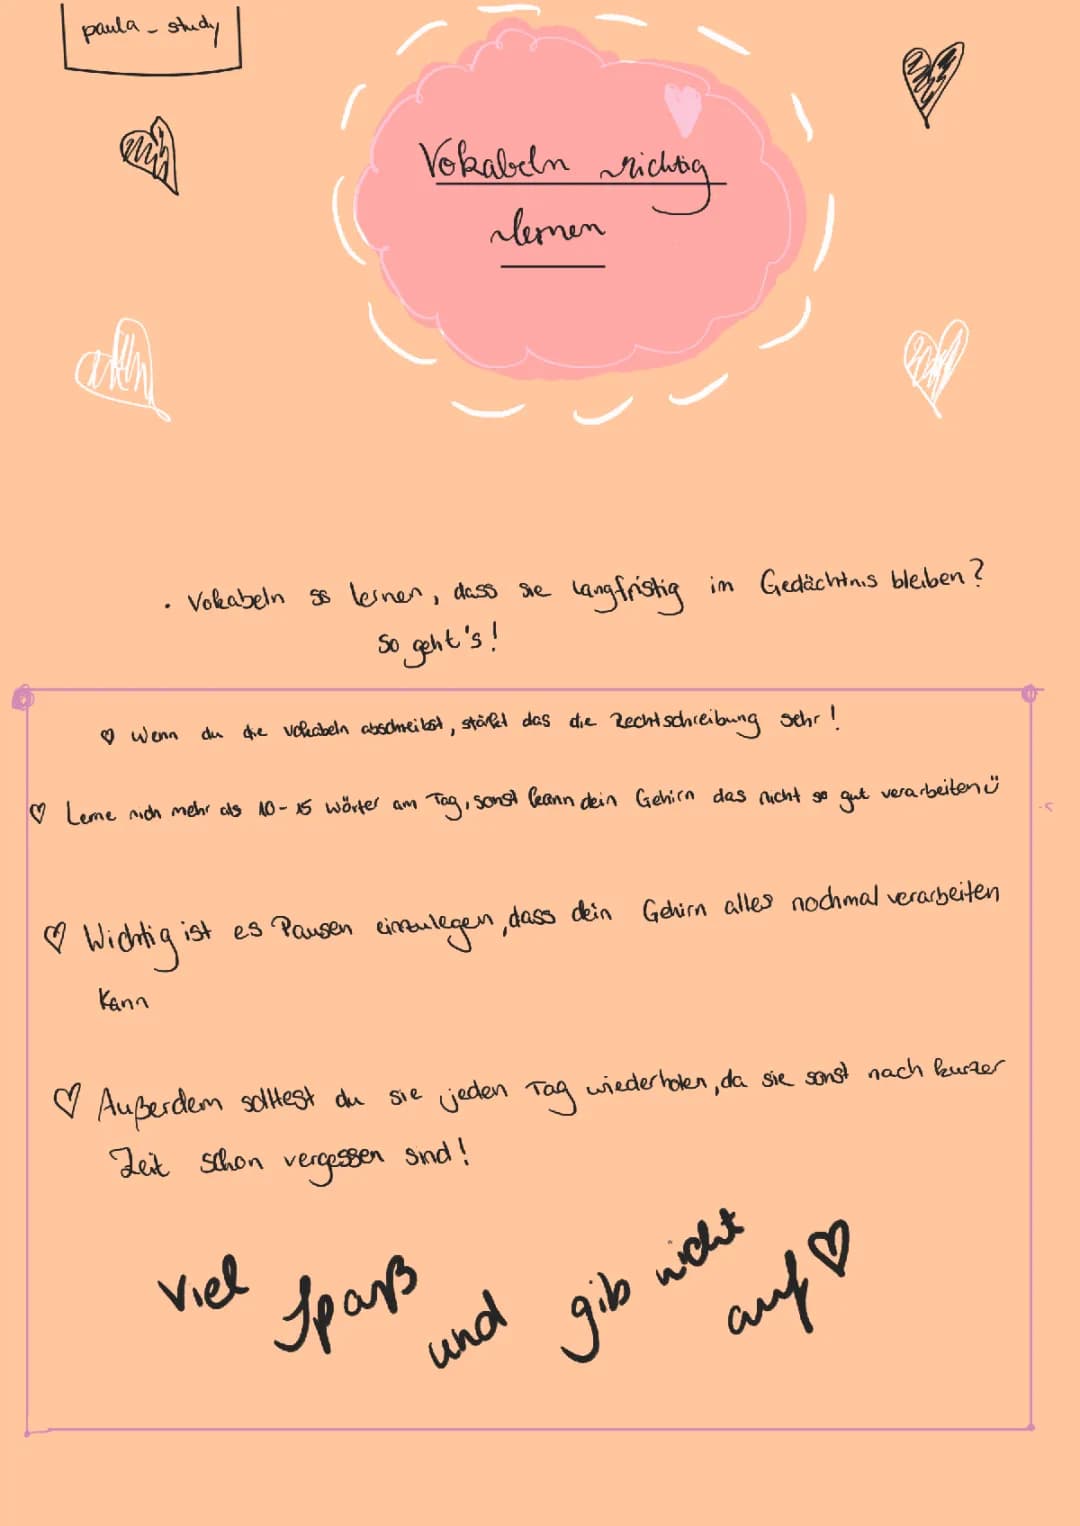 paula - study
Vokabeln richtig
lernen
• Vokabeln so lernen, dass sie langfristig im Gedächtnis bleiben?
So geht's!
♡ Wenn du die Vokabeln abschreibst, stärkt das die Rechtschreibung sehr!
♡ Lerne nich mehr als 10-15 Wörter am Tag, sonst kann dein Gehirn das nicht so gut verarbeiten ü
♡ Wichtig ist es Pausen einzulegen, dass dein Gehirn alles nochmal verarbeiten
kann
♡ Außerdem solltest du sie jeden Tag wiederholen, da sie sonst nach kurzer
Zeit schon vergessen sind!
Viel Spaß und gib nicht auf ♡